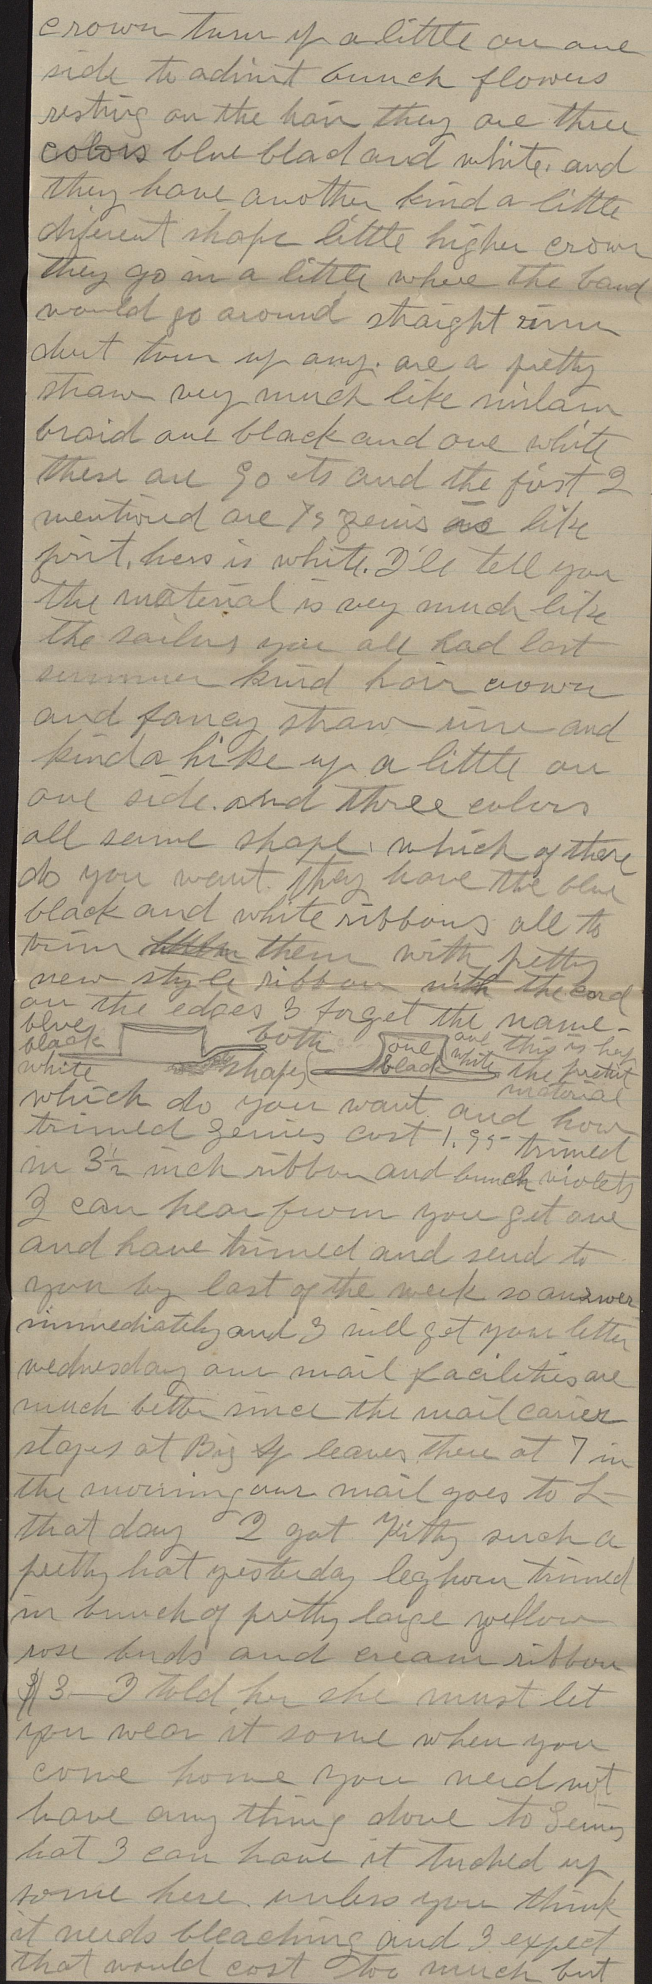 crown turn up a little on one
side to admit bunch flowers
resting on the hair they are three
colors blue black and white. and
they have another kind a little
diferent shape little higher crown
they go in a little where the band
would go around straight rim
dont turn up any. are a pretty
straw very much like milam
braid one black and one white
these are 90 cts and the first I
mentioned are 75 Zenis is like
first, hers is white. I'll tell you
the material is very much like
the sailors you all had last
summer kind hair crown
and fancy straw rim and
kinda hike up a little on
one side. and three colors
all same shape. which of these
do you want. They have the blue
black and white ribbons all to
trim them with pretty
new style ribbon with the cord
on the edges I forget the name -
blue
black
white
both
shapes
one
black
one
white
this is hers
the
material
which do you want. and how
trimed Zenies cost 1.95 trimed
in 3½ inch ribbon and bunch violets
I can hear from you get one
and have trimed and send to
you by last of the week so answer
immediately and I will get your letter
wednesday our mail facilities are
much better since the mail carier
stops at Big Sp leaves there at 7 in
the morning our mail goes to L-
that day I got Kitty such a
pretty hat yesterday leghorn trimed
in bunch of pretty large yellow
rose buds and cream ribbon
$3- I told her she must let
you wear it some when you
come home you need not
have any thing done to Zenies
hat I can have it tucked up
some here. unless you think
it needs bleaching and I expect
that would cost too much but